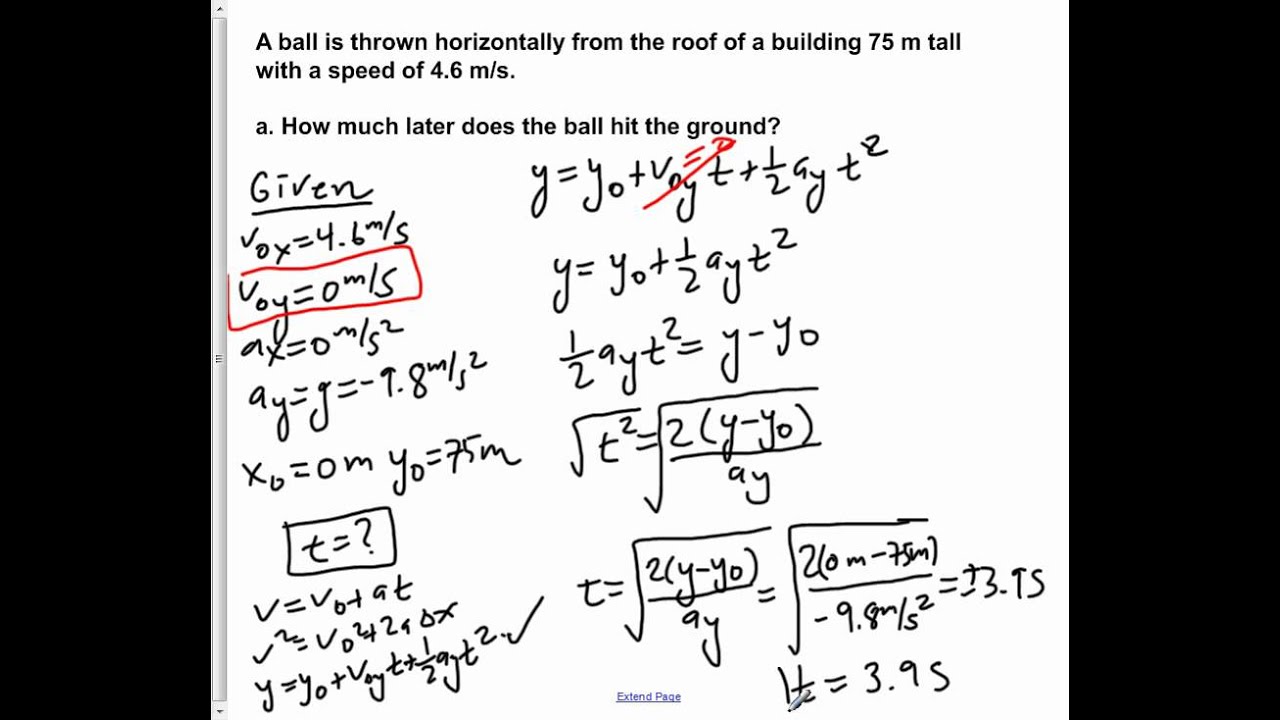 A ball is thrown horizontally from the roof of a building 75 m tall
with a speed of 4.6 m/s.
a. How much later does the ball hit the ground?
Given
v₀ₓ=4.6 m/s
v₀y=0 m/s
aₓ=0 m/s²
ay=g=-9.8 m/s²
x₀=0m y₀=75m
t=?
v=v₀+at
v²=v₀²+2aΔx
y=y₀+v₀yt+½ayt² ✓
y=y₀+v₀yt+½ayt²
=0
y=y₀+½ayt²
½ayt²=y-y₀
√t²=√(2(y-y₀)/ay)
t=√(2(y-y₀)/ay)=√(2(0m-75m)/-9.8m/s²)=±3.9s
t=3.9s
Extend Page